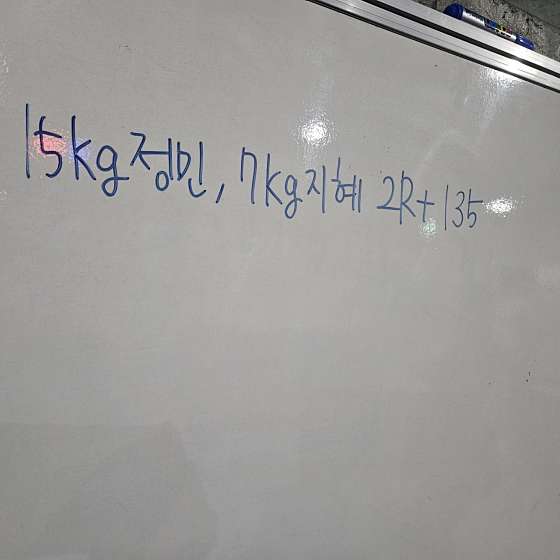 15kg정민, 7kg지혜 2R+135